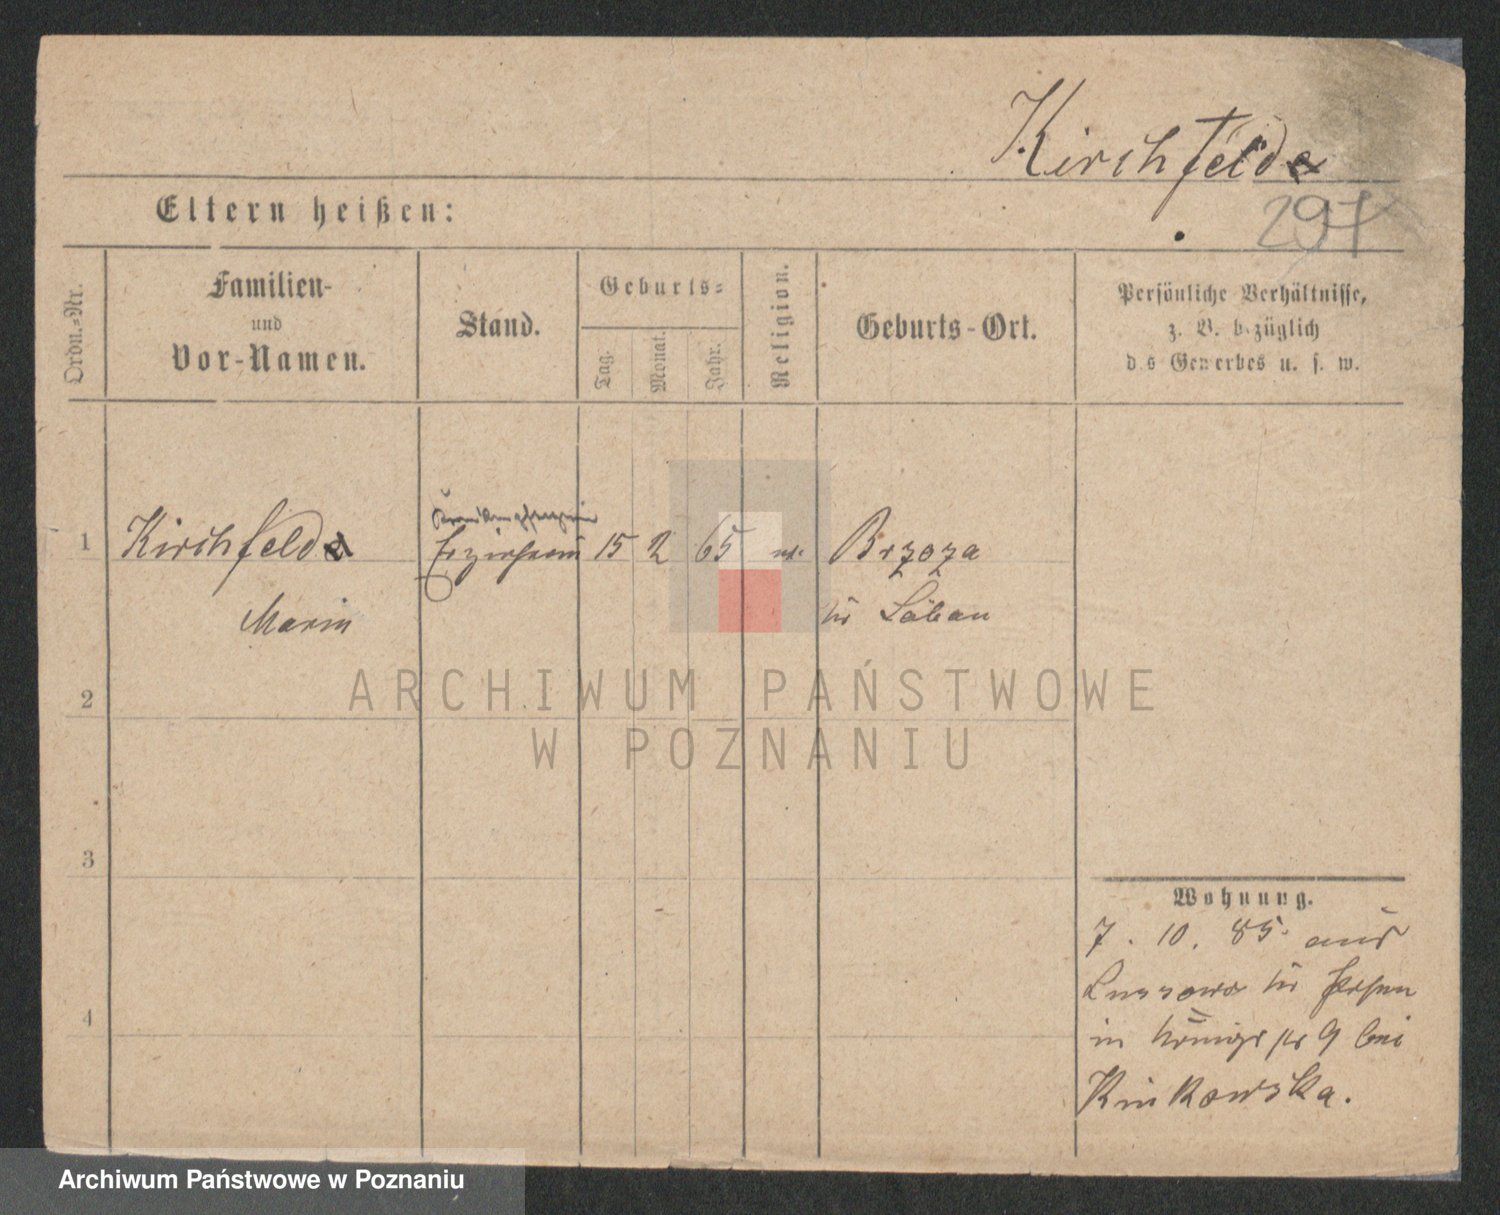 Kirchfeld
297
Eltern heißen:
Ordn.-Nr.
Familien-
und
Vor-Namen.
Stand.
Geburts-
Tag.
Monat.
Jahr.
Religion.
Geburts-Ort.
Persönliche Verhältnisse,
z. B. bezüglich
des Gewerbes u. s. w.
1
Kirchfeld
Erzieherin 15 2 65 Brzoza
Marie
Kr Löbau
2
3
4
Wohnung.
7. 10. 85. aus
Lussowo Kr Posen
in Königsstr 9 bei
Rinkowska.
ARCHIWUM PAŃSTWOWE
W POZNANIU
Archiwum Państwowe w Poznaniu